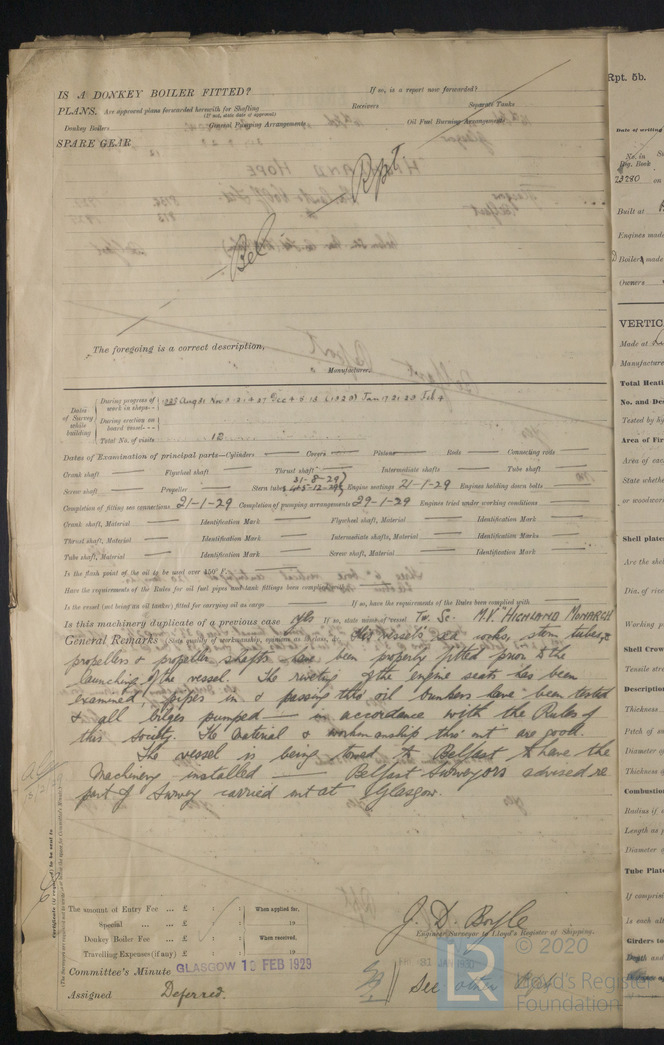 IS A DONKEY BOILER FITTED? If so, is a report now forwarded?
PLANS. Are approved plans forwarded herewith for Shafting Receivers Separate Tanks
(If not, state date of approval)
Donkey Boilers General Pumping Arrangements Oil Fuel Burning Arrangements
SPARE GEAR
Bel Rpt
The foregoing is a correct description,
Manufacturer.
Dates of Survey while building
During progress of work in shops - - 1928 Aug 31 Nov Dec (1929) Jan 17 21 29 Feb 4
During erection on board vessel - - -
Total No. of visits 12
Dates of Examination of principal parts—Cylinders Covers Pistons Rods Connecting rods
Crank shaft Flywheel shaft Thrust shaft Intermediate shafts Tube shaft
31-8-29
Screw shaft Propeller Stern tube Engine seatings 21-1-29 Engines holding down bolts
Completion of fitting sea connections 21-1-29 Completion of pumping arrangements 29-1-29 Engines tried under working conditions
Crank shaft, Material Identification Mark Flywheel shaft, Material Identification Mark
Thrust shaft, Material Identification Mark Intermediate shafts, Material Identification Marks
Tube shaft, Material Identification Mark Screw shaft, Material Identification Mark
Is the flash point of the oil to be used over 150° F.
Have the requirements of the Rules for oil fuel pipes and tank fittings been complied
Is the vessel (not being an oil tanker) fitted for carrying oil as cargo If so, have the requirements of the Rules been complied with
Is this machinery duplicate of a previous case yes If so, state name of vessel Tw. Sc. M.V. "HIGHLAND MONARCH
General Remarks (State quality of workmanship, opinions as to class, &c. This vessels sea cocks, stern tubes,
propellers & propeller shafts have been properly fitted prior to the
launching of the vessel. The riveting of the engine seats has been
examined, pipes in & passing thro' oil bunkers have been tested
& all bilges pumped — in accordance with the Rules of
this Society. The material & workmanship thro' out are good.
The vessel is being towed to Belfast to have the
Machinery installed — Belfast Surveyors advised re
part of Survey carried out at Glasgow.
The amount of Entry Fee ... £ : : When applied for,
Special ... ... £ : : 19
Donkey Boiler Fee ... £ : : When received,
Travelling Expenses (if any) £ : : 19
J. D. Boyle
Engineer Surveyor to Lloyd's Register of Shipping.
Committee's Minute GLASGOW 19 FEB 1929
FRI. 31 JAN 1930
Assigned Deferred.
See other Rpt
© 2020
Lloyd's Register
Foundation
LR
Rpt. 5b.
Date of writing
No. in
Reg. Book
23280 on
Built at
Engines made
Boilers made
Owners
VERTIC
Made at
Manufacture
Total Heati
No. and Des
Tested by hy
Area of Fir
Area of eac
State whethe
or woodwor
Shell plate
Are the shel
Dia. of rive
Working p
Shell Crow
Tensile stre
Description
Thickness
Pitch of st
Diameter o
Thickness o
Combustio
Radius if c
Length as p
Diameter o
Tube Plat
If comprise
is each alt
Girders to